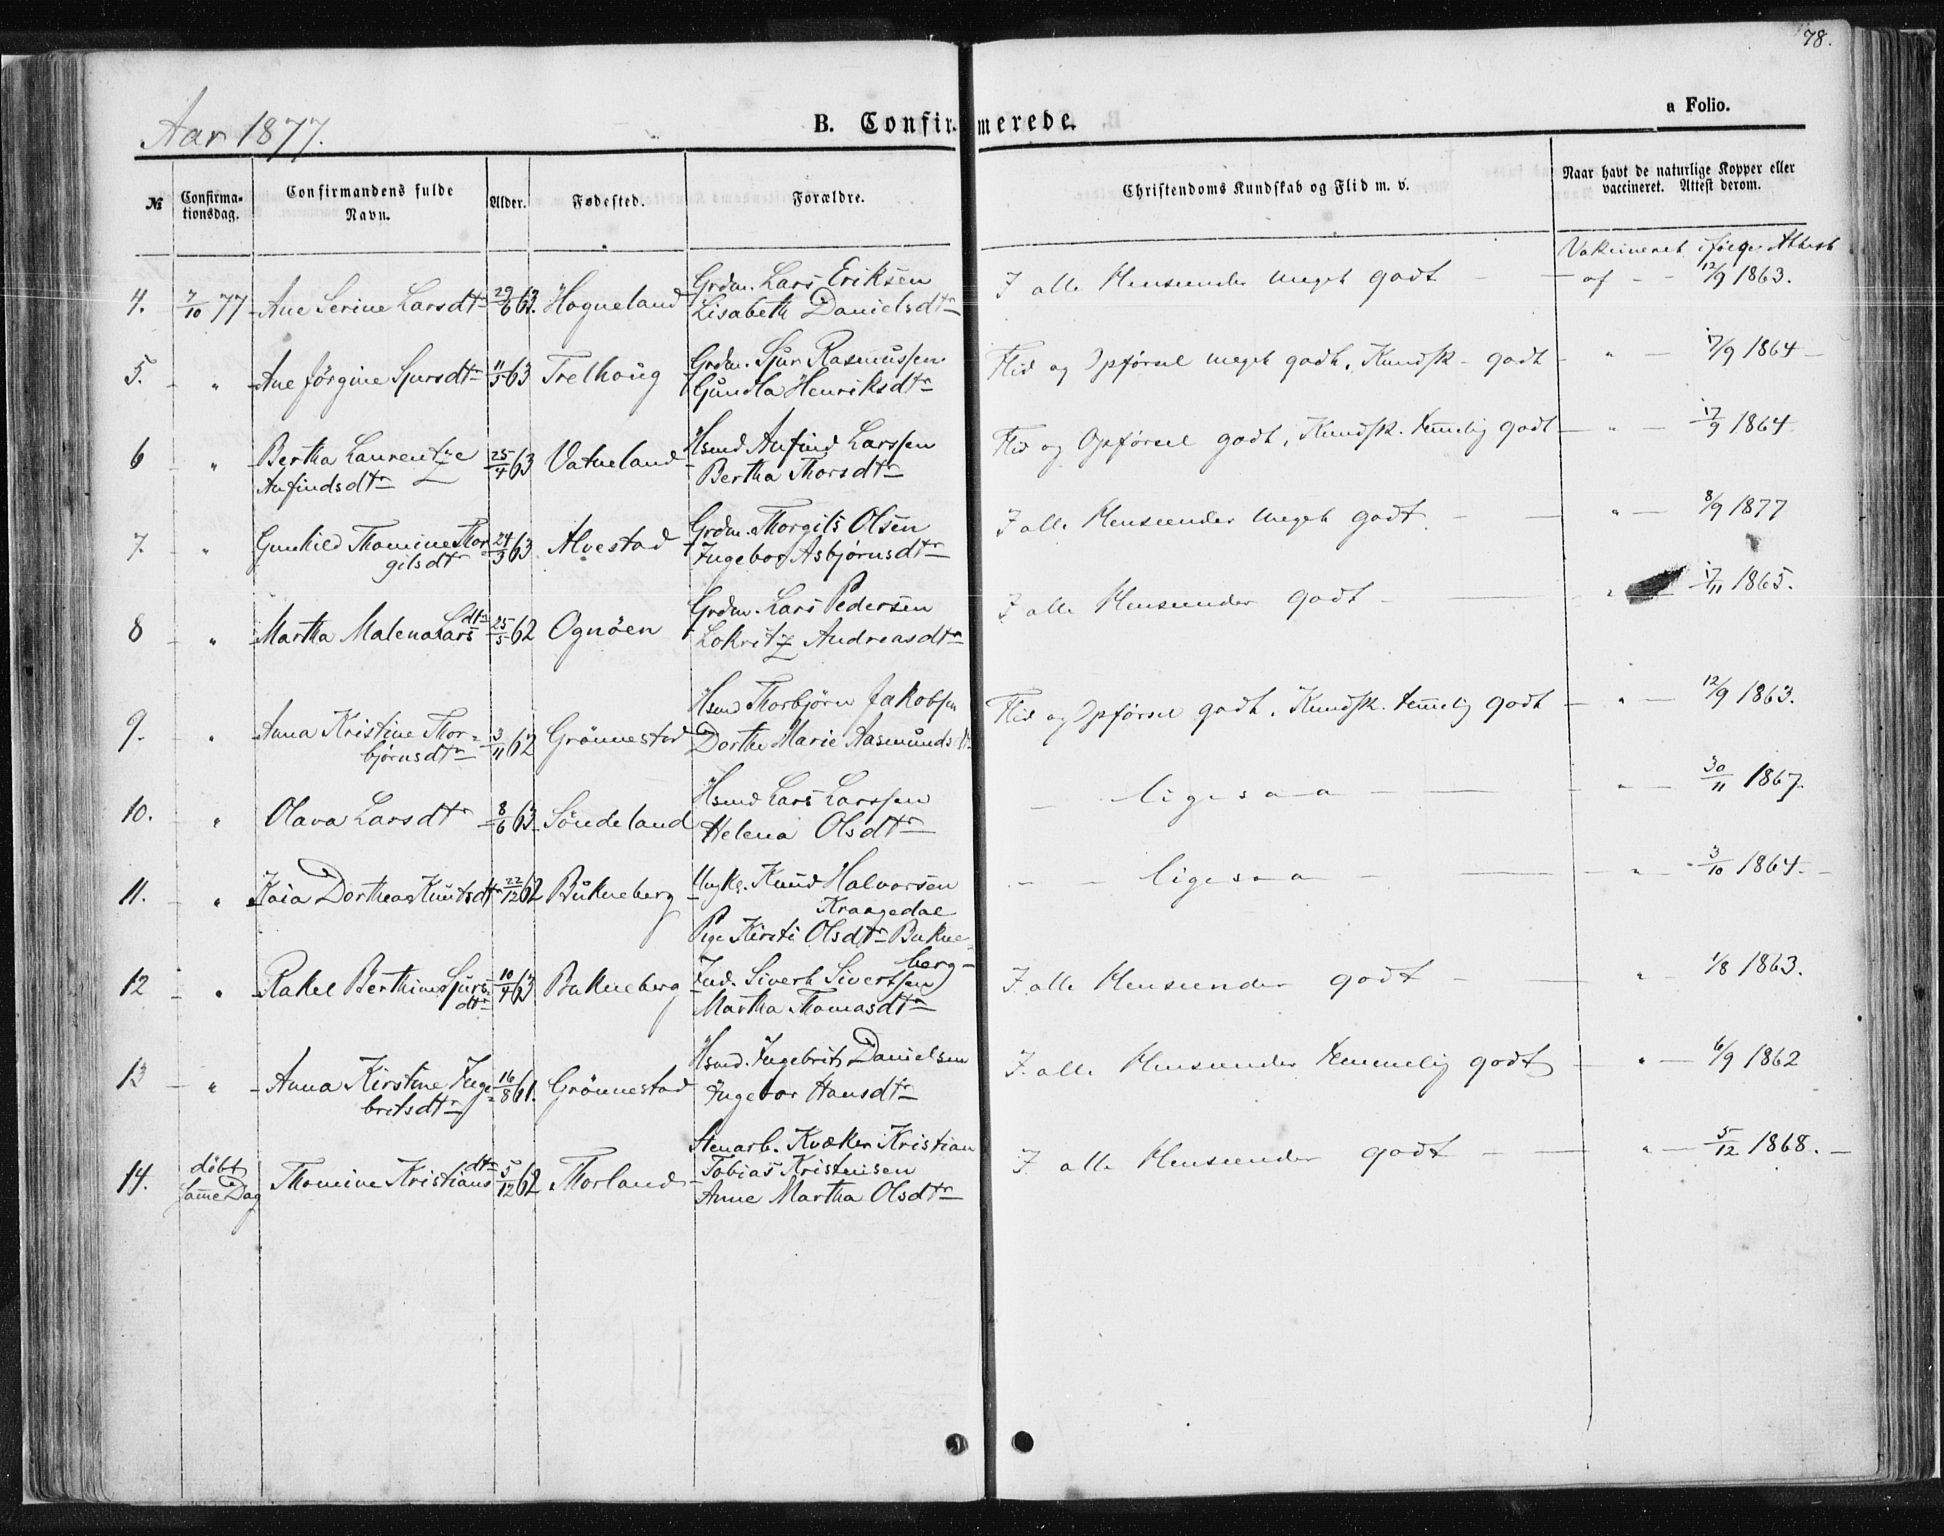 78.
Aar 1877.
B. Confirmerede.
a Folio.
№
Confirma-
tionsdag.
Confirmandens fulde
Navn.
Alder.
Fødested.
Forældre.
Christendoms Kundskab og Flid m. v.
Naar havt de naturlige Kopper eller
vaccineret. Attest derom.
Vakcineret ifølge Attest
4. 7/10 77 Ane Serine Larsdtr 29/6 63. Hogneland Grdm. Lars Eriksen
Lisabeth Danielsdtr
I alle Henseender meget godt — af — 12/9 1863.
5. — " — Ane Jørgine Sjursdtr 11/5 63 Trelhoug Grdm. Sjur Rasmussen
Gundla Henriksdtr
Flid og Opførsel meget godt. Kundsk. godt — " — 17/9 1864 —
6 — " — Bertha Laurentze 25/4 63 Vatneland Hsmd Anfind Larssen
Anfindsdtr Bertha Thorsdtr
Flid og Opførsel godt, Kundsk. temelig godt — " — 17/9 1864
7. — " Gunhild Thomine Thor 24/3 63 Alvestad Grdm. Thorgils Olsen
gilsdtr Ingebor Asbjørnsdtr
I alle Henseender meget godt. — " — 8/9 1877
8 — " — Martha Malena Lars dtr 25/5 62 Ognöen Grdm. Lars Pedersen
Lokritz Andreasdtr
I alle Henseender godt — " — 17/11 1865.
9. — " — Anna Kristine Thor- 3/11 62 Grönnestad Hsmd Thorbjörn Jakobsen
bjørnsdtr Dorthe Marie Rasmundsdtr
Flid og Opførsel godt. Kundsk. temelig godt — " — 12/9 1863.
10. — " Olava Larsdtr 8/6 63. Söndeland Hsmd Lars Larssen
Helena Olsdtr
— ligesaa — " — 30/11 1867.
11. — " Kaia Dorthea Knutsdtr 22/12 62 Bukneberg Ungk. Knud Halvorsen
Kraagedal
Pige Kirsti Olsdtr Bukne-
berg
— ligesaa — " — 3/10 1864. —
12 — " — Rakel Berthine Sjurs 10/4 63 Bukneberg Ind. Sivert Sivertsen
dtr Martha Thomasdtr
I alle Henseender godt — " — 1/8 1863.
13 — " — Anna Kirstine Inge 16/8 61. Grönnestad Hsmd. Ingebrit Danielsen
britsdtr Ingebor Hansdtr
I alle Henseender temmelig godt — " — 6/9 1862
14. döbt Thomine Kristians dtr 5/12 62 Thorland Stenarb. Kvæker Kristian
samme Dag Tobias Kristensen
Anne Martha Olsdtr
I alle Henseender godt — " — 5/12 1868. —